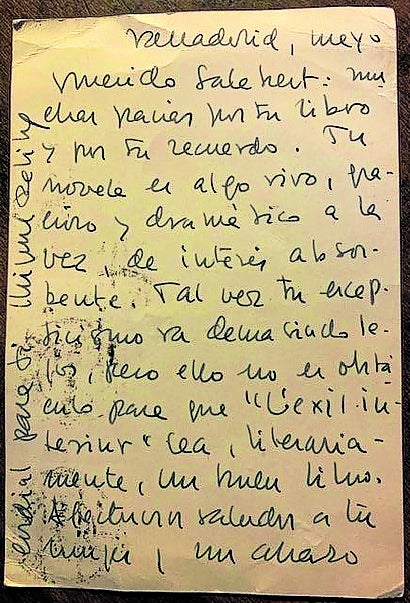 Valladolid, mayo
Querido Salabert: mu
chas gracias por tu libro
y por tu recuerdo. Tu
novela es algo vivo, gra-
cioso y dramático a la
vez, de interés absor-
bente. Tal vez tu escep-
ticismo va demasiado le-
jos, pero ello no es obstá
culo para que "L'exil in-
terieur" sea, literaria-
mente, un buen libro.
Afectuosos saludos a tu
mujer y un abrazo
cordial para ti Miguel Delibes